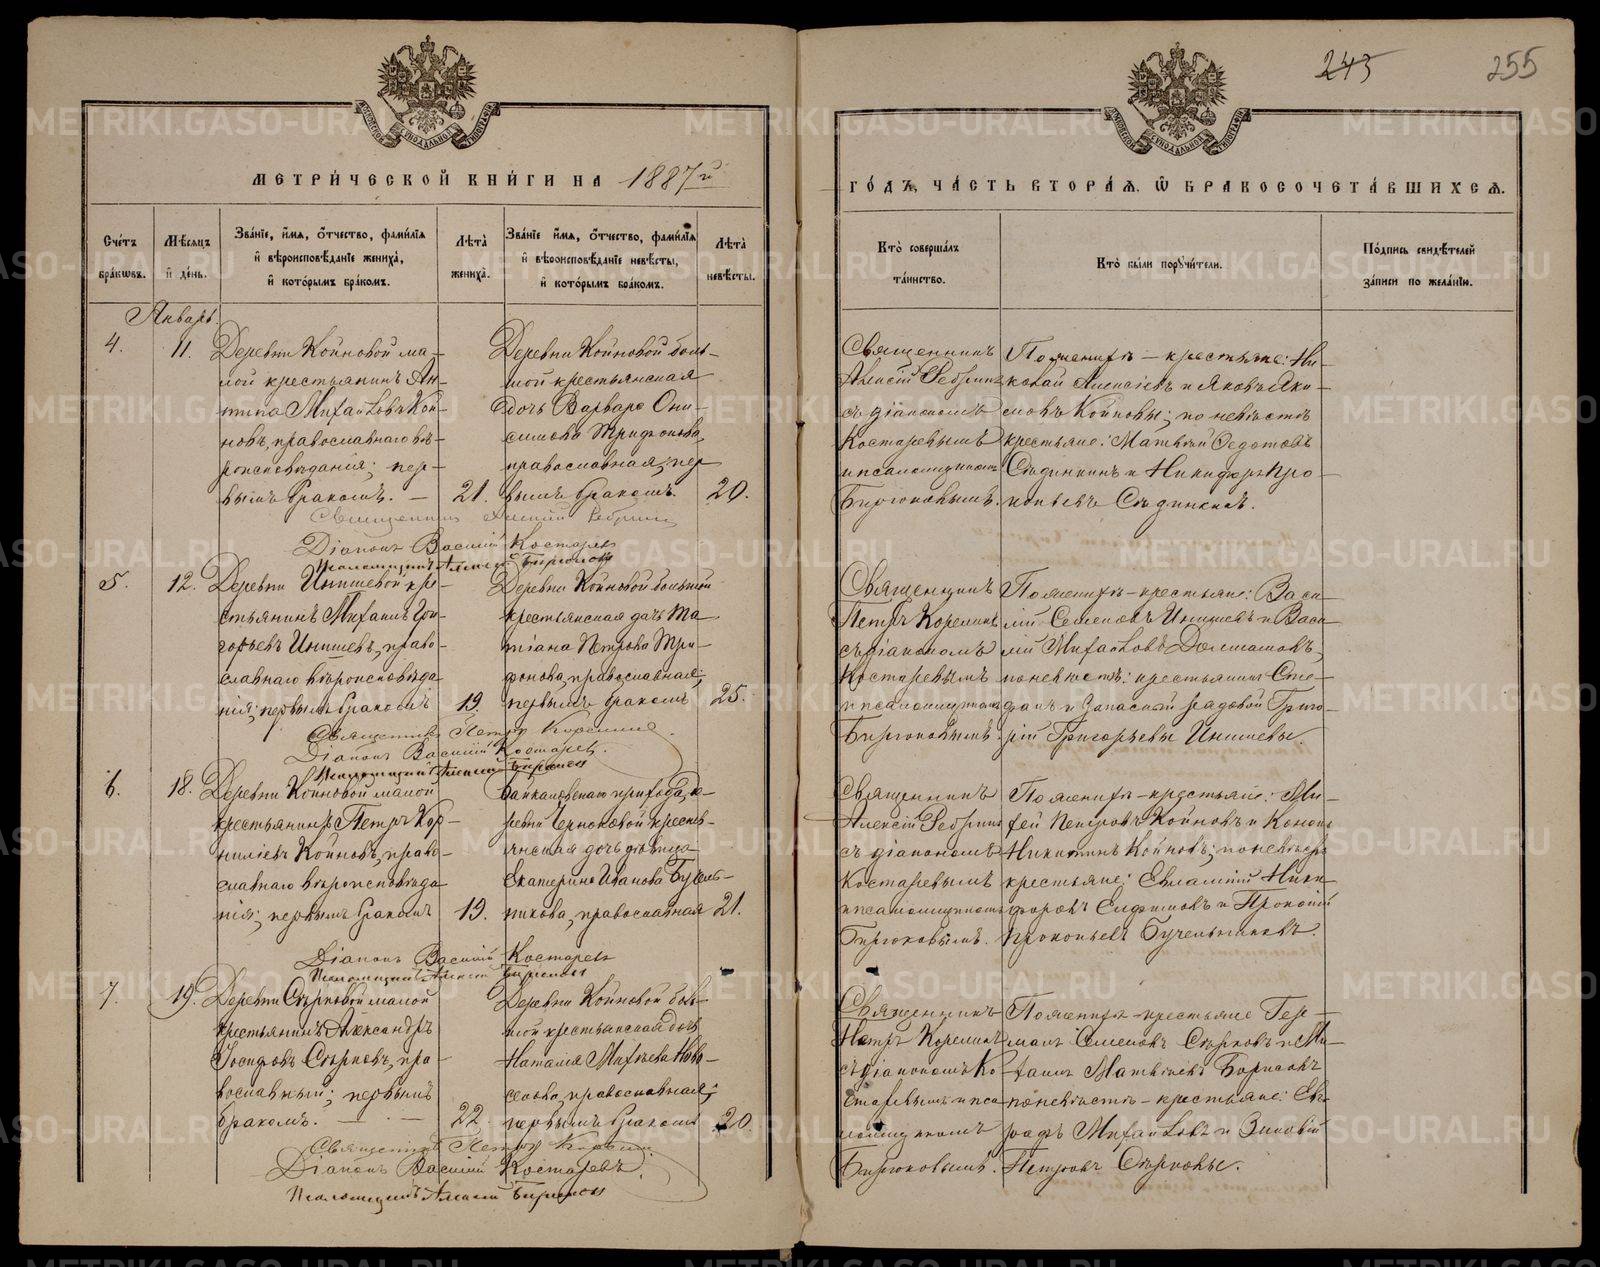 245
255
МЕТРИ́ЧЕСКОЙ КНИ́ГИ НА 1887й
ГО́ДЪ, ЧА́СТЬ ВТОРА́Я, Ѽ БРАКОСОЧЕТА́ВШИХСЯ.
Сче́тъ бра́кѡвъ.
Мѣ́сяцъ и҆ де́нь.
Зва́нїе, и҆́мя, ѻ҆́тчество, фами́лїя
и҆ вѣроисповѣ́данїе жениха̀,
и҆ кото́рымъ бра́комъ.
Лѣта̀ жениха̀.
Зва́нїе и҆́мя, ѻ҆́тчество, фами́лїя
и҆ вѣроисповѣ́данїе невѣ́сты,
и҆ кото́рымъ бра́комъ.
Лѣта̀ невѣ́сты.
Кто̀ соверша́лъ
та́инство.
Кто̀ бы́ли порꙋчи́тели.
По́дпись свидѣ́телей
за́писи по жела́нїю.
Январь
4.
11.
Деревни Койновой ма-
лой крестьянинъ Ан-
типа Михайловъ Кой-
новъ, православнаго вѣ-
роисповѣданія; пер-
вымъ бракомъ. —
21.
Деревни Койновой боль-
шой крестьянская
дочь Варвара Они-
симова Трифонова,
православная, пер-
вымъ бракомъ.
20.
Священникъ
Алексій Ребринъ
съ діакономъ
Костаревымъ
и псаломщикомъ
Бирюковымъ.
По женихѣ — крестьяне: Ни-
колай Алексіевъ и Яковъ Яки-
мовъ Койновы; по невѣстѣ
крестьяне: Матвѣй Федотовъ
Сѣдинкинъ и Никифоръ Про-
копьевъ Сѣдинкинъ.
Священникъ Алексій Ребринъ
Діаконъ Василій Костаревъ
Псаломщикъ Алексій Бирюковъ
5.
12.
Деревни Инишевой кре-
стьянинъ Михаилъ Гри-
горьевъ Инишевъ, право-
славнаго вѣроисповѣда-
нія; первымъ бракомъ
19.
Деревни Койновой большой
крестьянская дочь Та-
тіана Петрова Три-
фонова, православная;
первымъ бракомъ
25.
Священникъ
Петръ Корелинъ
съ діакономъ
Костаревымъ
и псаломщикомъ
Бирюковымъ.
По женихѣ — крестьяне: Васи-
лій Семеновъ Инишевъ и Васи-
лій Михайловъ Долматовъ,
по невѣстѣ: крестьянинъ Сте-
фанъ и Запасный рядовой Григо-
рій Григорьевы Инишевы.
Священникъ Петръ Корелинъ.
Діаконъ Василій Костаревъ.
Псаломщикъ Алексій Бирюковъ
6.
18.
Деревни Койновой малой
крестьянинъ Петръ Кор-
ниліевъ Койновъ, право-
славнаго вѣроисповѣда-
нія; первымъ бракомъ
19.
Байкаловскаго прихода, де-
ревни Чернаковой кресть-
янская дочь дѣвица
Екатерина Иванова Бучель-
никова, православная
21.
Священникъ
Алексій Ребринъ
съ діакономъ
Костаревымъ
и псаломщикомъ
Бирюковымъ.
По женихѣ — крестьяне: Ми-
хей Петровъ Койновъ и Кононъ
Никитинъ Койновъ; по невѣстѣ
крестьяне: Евлампій Ники-
форовъ и Прокопій
Прокопьевъ Бучельниковъ.
Діаконъ Василій Костаревъ
Псаломщикъ Алексій Бирюковъ
7.
19.
Деревни Сѣрковой малой
крестьянинъ Александръ
Іосифовъ Сѣрковъ, пра-
вославный; первымъ
бракомъ. —
22.
Деревни Койновой боль-
шой крестьянская дочь
Наталія Михѣева Ново-
селова, православная;
первымъ бракомъ
20.
Священникъ
Петръ Корелинъ
съ діакономъ Ко-
старевымъ и пса-
ломщикомъ
Бирюковымъ.
По женихѣ — крестьяне Гер-
манъ Симеоновъ Сѣрковъ и Ми-
хаилъ Матвѣевъ Борисовъ
по невѣстѣ — крестьяне: Ев-
графъ Михайловъ и Зиновій
Петровъ Сѣрковы.
Священникъ Петръ Корелинъ.
Діаконъ Василій Костаревъ.
Псаломщикъ Алексій Бирюковъ
METRIKI.GASO-URAL.RU